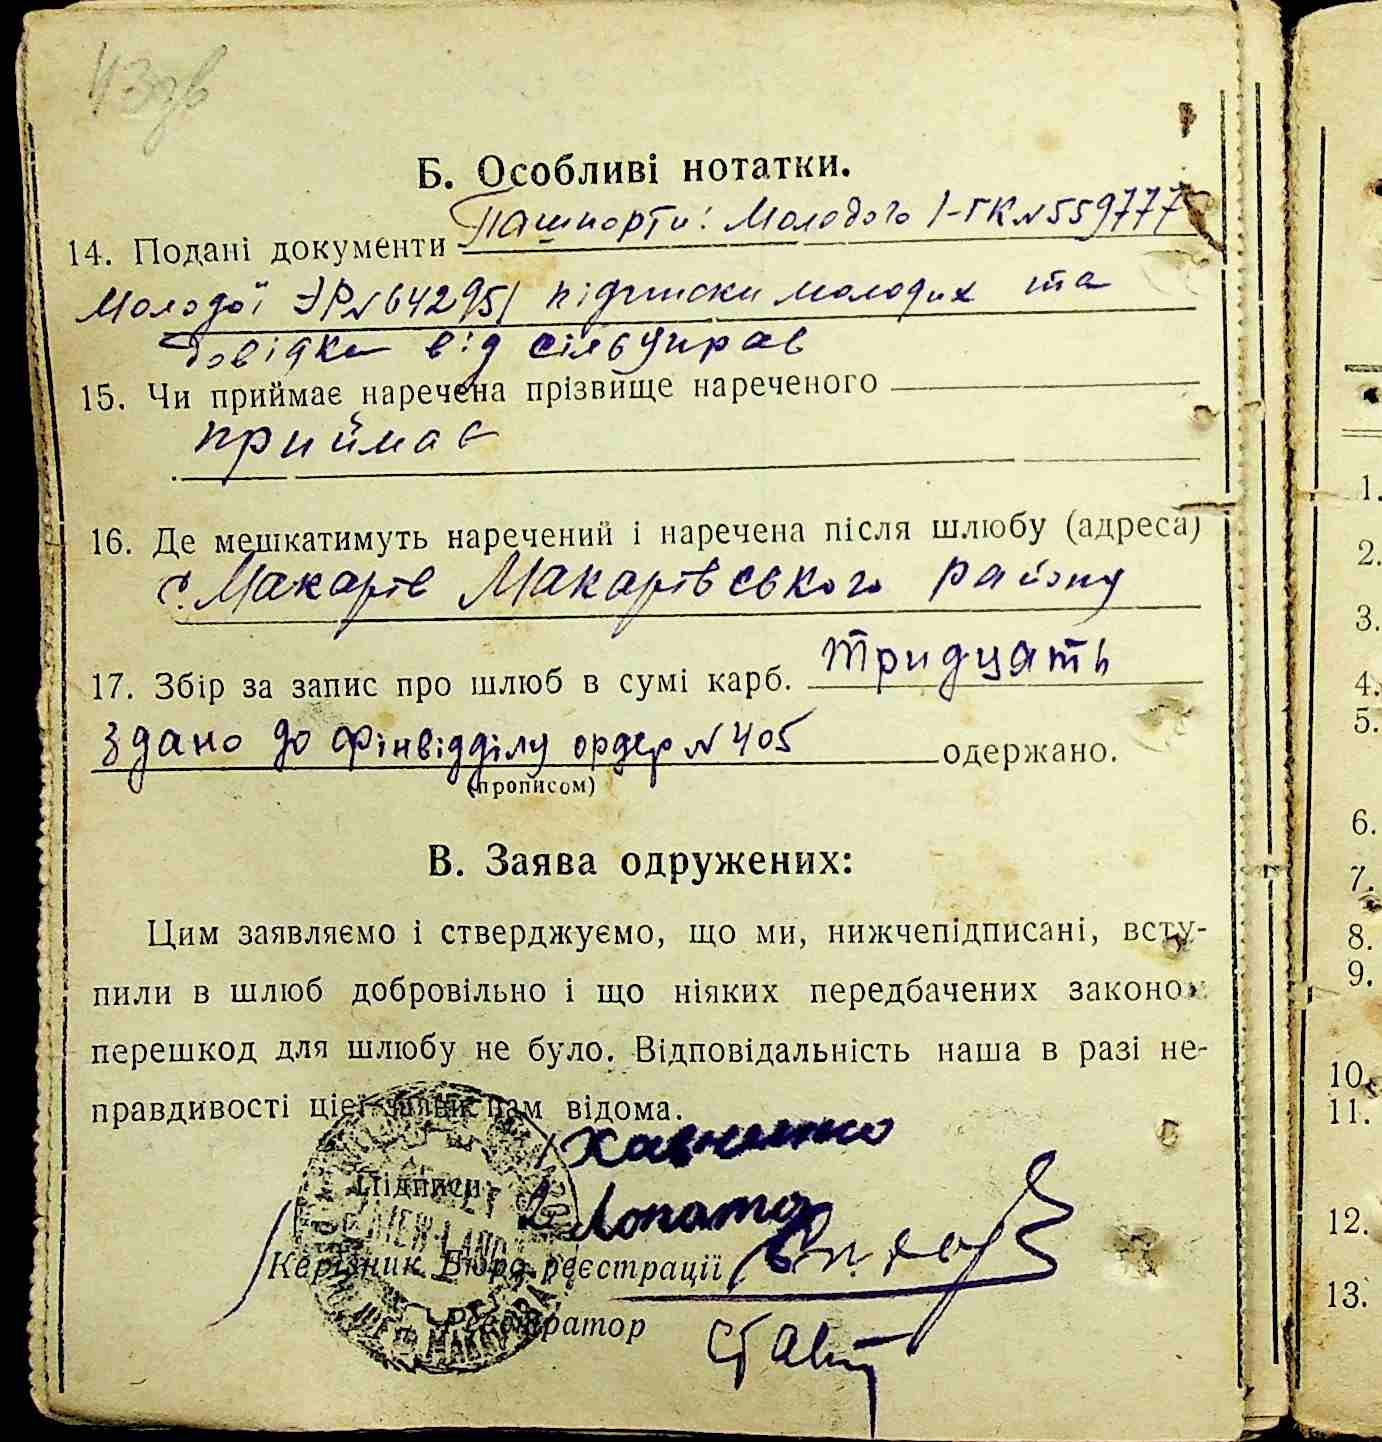 43зв
Б. Особливі нотатки.
14. Подані документи Пашпорти: Молодого І-ГК №559777
Молодої ЭР№642951 підписки молодих та
довідки від сільуправ
15. Чи приймає наречена прізвище нареченого
приймає
16. Де мешкатимуть наречений і наречена після шлюбу (адреса)
с. Макарів Макарівського району
17. Збір за запис про шлюб в сумі карб. тридцять
здано до Фінвідділу ордер №405 одержано.
(прописом)
В. Заява одружених:
Цим заявляємо і стверджуємо, що ми, нижчепідписані, всту-
пили в шлюб добровільно і що ніяких передбачених законом
перешкод для шлюбу не було. Відповідальність наша в разі не-
правдивості цієї заяви нам відома.
Підписи
Лопата
Керівник Бюра реєстрації
Реєстратор
1.
2.
3.
4.
5.
6.
7.
8.
9.
10.
11.
12.
13.